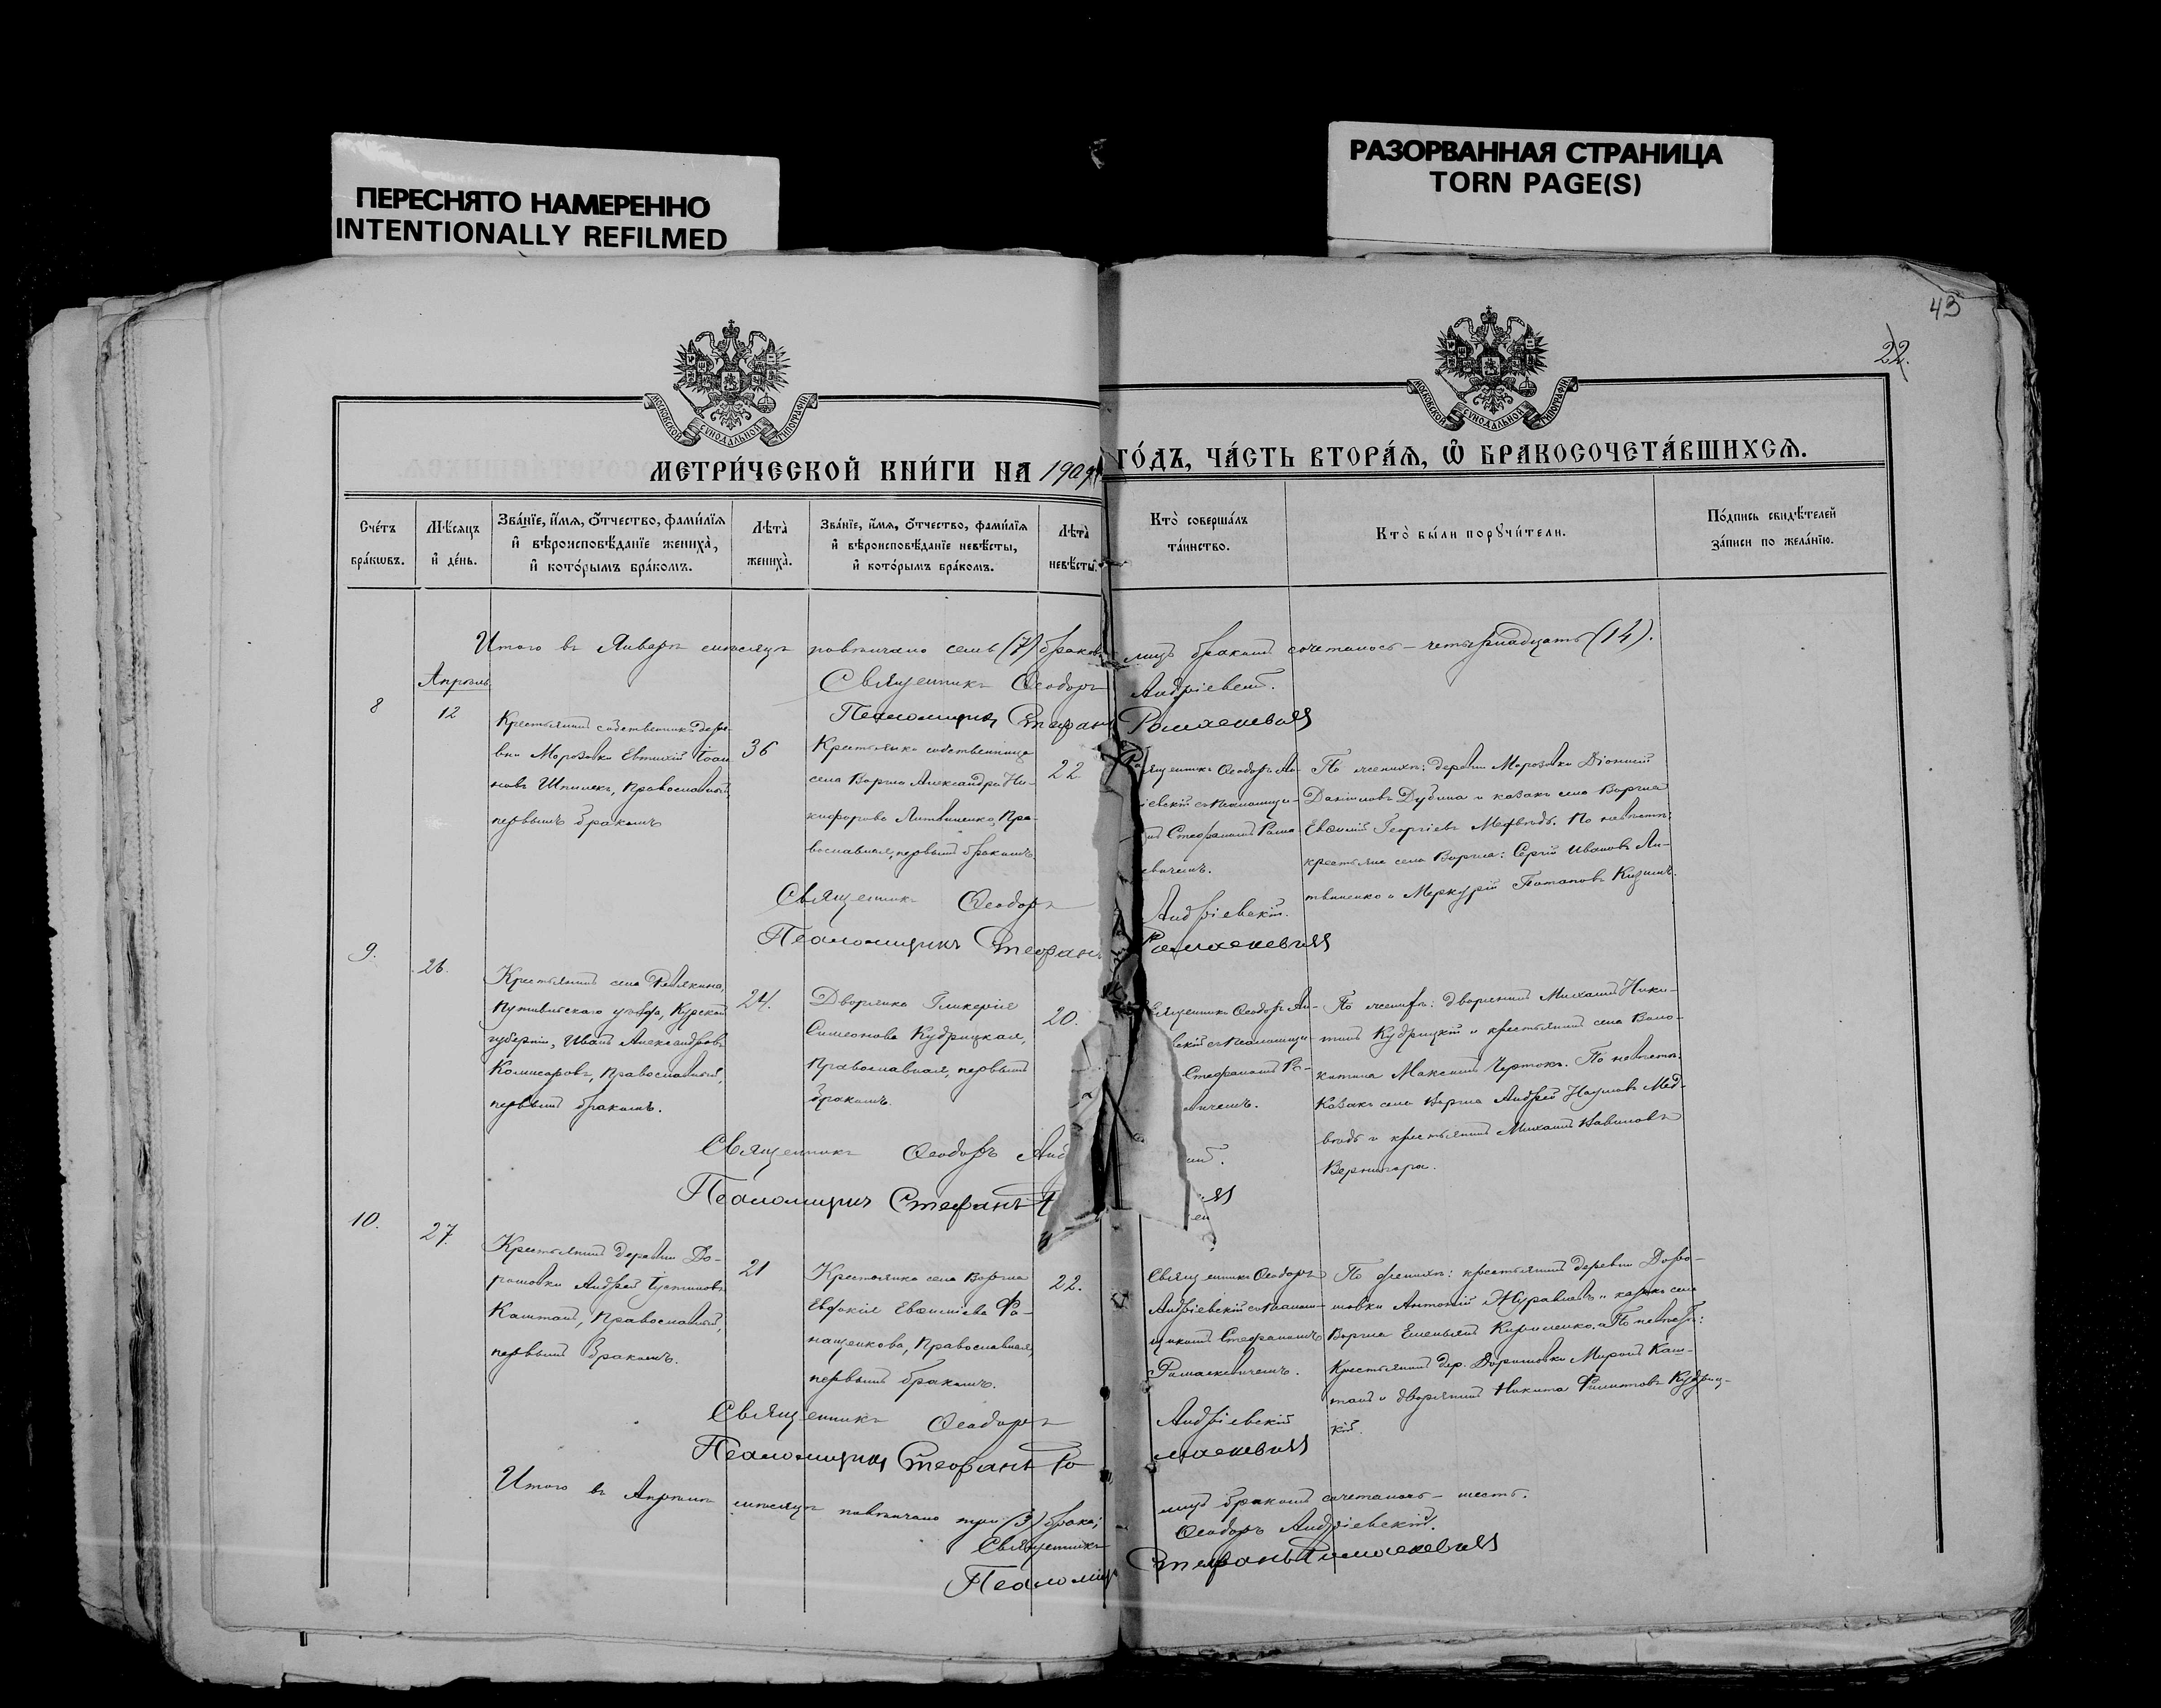 ПЕРЕСНЯТО НАМЕРЕННО
INTENTIONALLY REFILMED
РАЗОРВАННАЯ СТРАНИЦА
TORN PAGE(S)
43
22.
МОСКОВСКОЙ СУНОДАЛЬНОЙ ТИПОГРАФІИ
МОСКОВСКОЙ СУНОДАЛЬНОЙ ТИПОГРАФІИ
МЕТРИ́ЧЕСКОЙ КНИ́ГИ НА 1909 ГО́ДЪ, ЧА́СТЬ ВТОРА́Ѧ, Ѿ БРАКОСОЧЕТА́ВШИХСѦ.
Сче́тъ бра́кѡвъ.
Мѣ́сяцъ и҆ де́нь.
Зва́нїе, и҆́мя, ѻ҆́тчество, фами́лїя и҆ вѣроисповѣ́данїе жениха̀, и҆ кото́рымъ бра́комъ.
Лѣта̀ жениха̀.
Зва́нїе, и҆́мя, ѻ҆́тчество, фами́лїя и҆ вѣроисповѣ́данїе невѣ́сты, и҆ кото́рымъ бра́комъ.
Лѣта̀ невѣ́сты.
Кто̀ соверша́лъ та́инство.
Кто̀ бы́ли порꙋчи́тели.
По́дпись свидѣ́телей за́писи по жела́нїю.
Итого въ Январѣ мѣсяцѣ повѣнчано семь (7) браковъ лицъ бракомъ сочеталось – четырнадцать (14).
Священникъ Ѳеодоръ Андріевскій.
Псаломщикъ Стефанъ Ромаскевичъ
8
Апрѣль
12
Крестьянинъ собственникъ дере-
вни Морозовки Евтихій Іоан
новъ Шпилекъ, Православный,
первымъ бракомъ
36
Крестьянка собственница
села Воргла Александра Ни-
кифорова Литвиненко, Пра-
вославная, первымъ бракомъ.
22
Священникъ Ѳеодоръ Ан-
ріевскій съ Псаломщи-
Стефаномъ Рома-
евичемъ.
По женихѣ: деревни Морозовки Діонисій
Даніиловъ Дубина и казакъ села Воргла
Евѳимій Георгіевъ Медвѣдь. По невѣстѣ:
крестьяне села Воргла: Сергій Ивановъ Ли-
твиненко и Меркурій Потаповъ
Священникъ Ѳеодоръ Андріевскій.
Псаломщикъ Стефанъ Ромаскевичъ
9.
26.
Крестьянинъ села
Путивльскаго уѣзда, Курской
губерніи, Иванъ Александровъ
Комисаровъ, Православный,
первымъ бракомъ.
24.
Дворянка Гликерія
Симеонова Кудрицкая,
Православная, первымъ
бракомъ.
20.
Священникъ Ѳеодоръ Ан-
вскій съ Псаломщи-
Стефаномъ Ро-
ичемъ.
По женихѣ: дворянинъ Михаилъ Ники-
тинъ Кудрицкій и крестьянинъ села Воло-
китина Максимъ Чертокъ. По невѣстѣ:
Казакъ села Воргла Андрей Наумовъ Мед-
вѣдь и крестьянинъ Михаилъ Савиновъ
Вернигора.
Священникъ Ѳеодоръ Анд
Псаломщикъ Стефанъ
10.
27.
Крестьянинъ деревни До-
рошовки Андрей Іустиновъ
Каштанъ, Православный,
первымъ бракомъ.
21
Крестьянка села Воргла
Евдокія Евѳиміева Фа-
нащенкова, Православная,
первымъ бракомъ.
22.
Священникъ Ѳеодоръ
Андріевскій съ Псалом-
щикомъ Стефаномъ
Ромаскевичемъ.
По женихѣ: крестьянинъ деревни Доро-
шовки Антоній Журавлевъ и казакъ села
Воргла Емельянъ Кириленко, а По невѣстѣ:
Крестьянинъ дер. Дорошовки Миронъ Каш-
танъ и дворянинъ Никита Филиповъ Кудриц-
кій.
Священникъ Ѳеодоръ Андріевскій
Псаломщикъ Стефанъ Ромаскевичъ
Итого въ Апрѣлѣ мѣсяцѣ повѣнчано три (3) брака; лицъ бракомъ сочеталось – шесть.
Священникъ Ѳеодоръ Андріевскій.
Псаломщ Стефанъ Ромаскевичъ